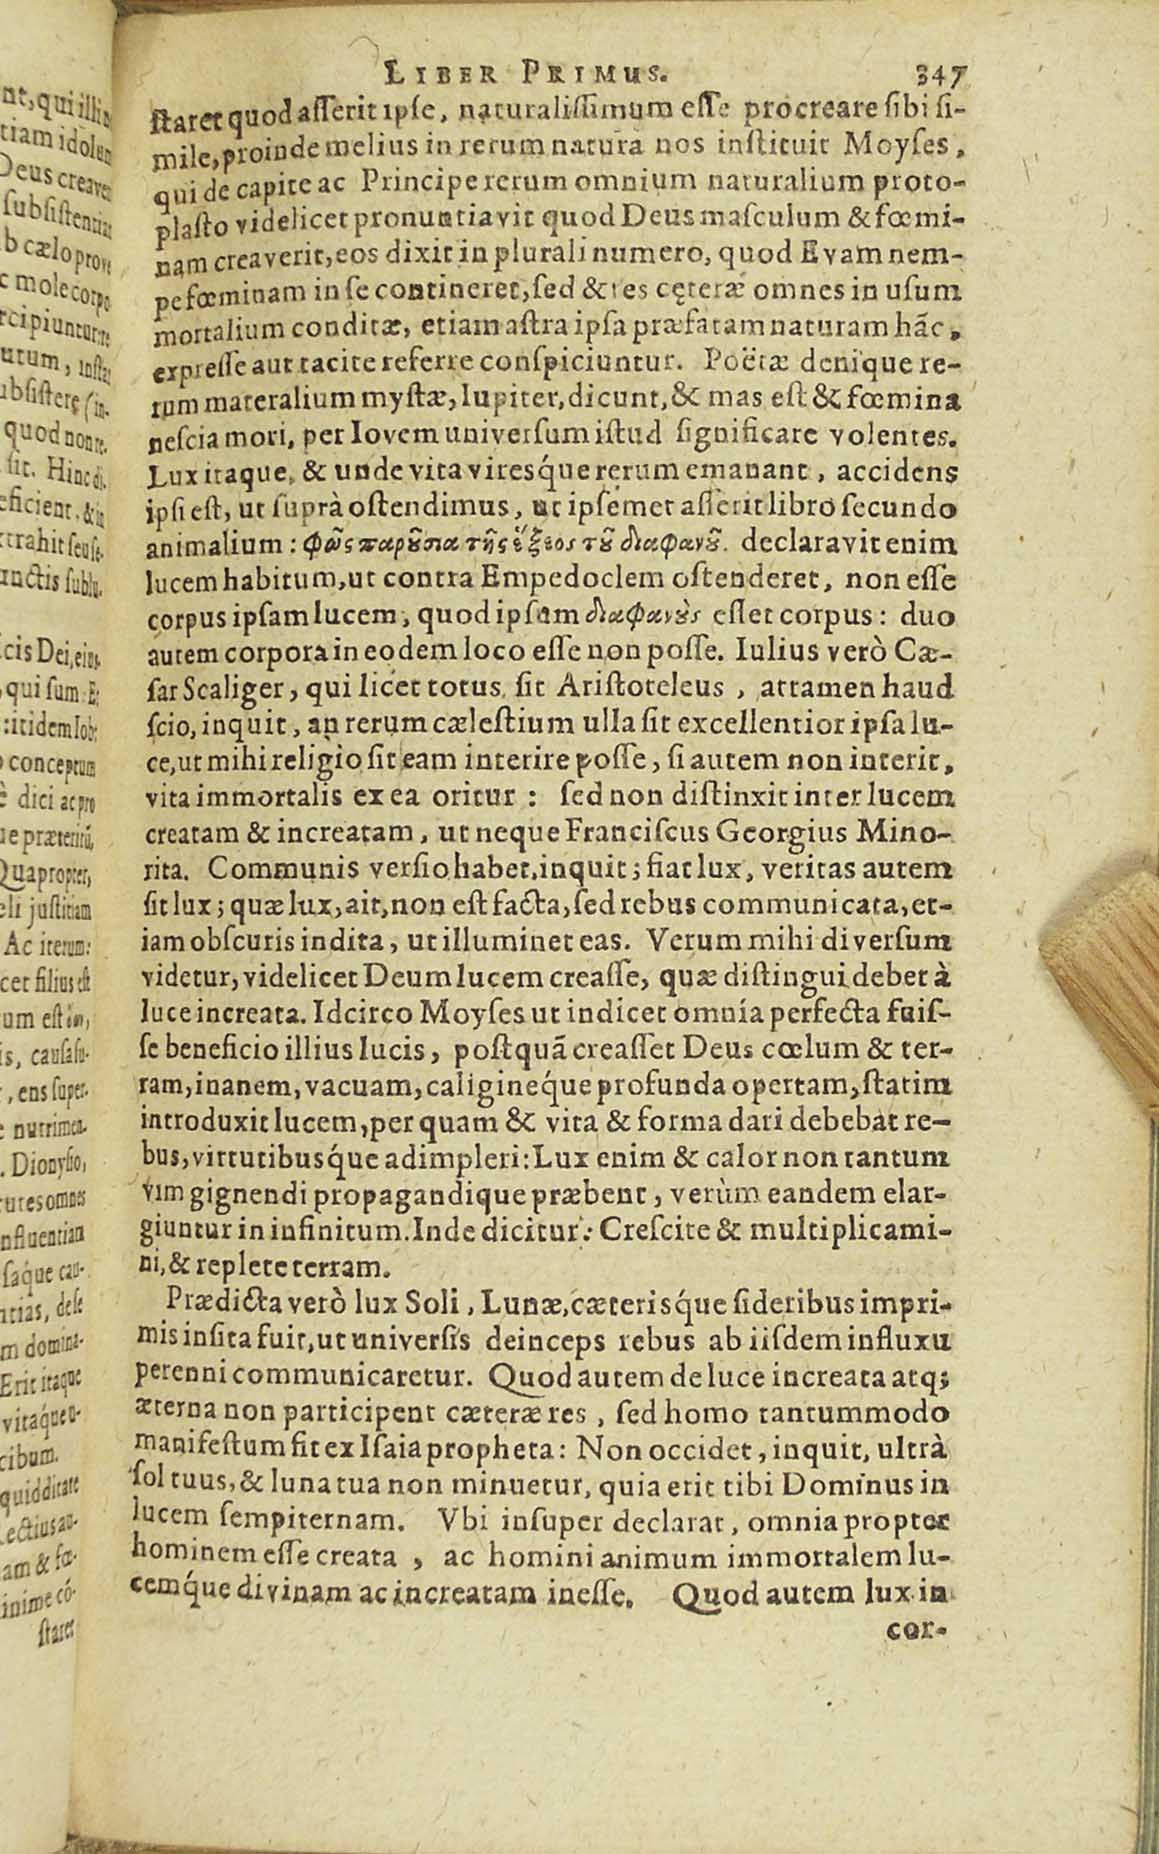 LIBER PRIMUS. 347
ſtaret quod aſſerit ipſe, naturaliſſimum eſſe procreare ſibi ſi-
mile, proinde melius in rerum natura nos inſtituit Moyſes,
qui de capite ac Principe rerum omnium naturalium proto-
plaſto videlicet pronuntiavit quod Deus maſculum & fœmi-
nam creaverit, eos dixit in plurali numero, quod Evam nem-
pe fœminam in ſe contineret, ſed & res cęteræ omnes in uſum
mortalium conditæ, etiam aſtra ipſa præfatam naturam hãc,
expreſſe aut tacite referre conſpiciuntur. Poëtæ denique re-
rum materalium myſtæ, Iupiter, dicunt, & mas eſt & fœmina
neſcia mori, per Iovem univerſum iſtud ſignificare volentes.
Lux itaque, & unde vita viresq́ue rerum emanant, accidens
ipſi eſt, ut ſuprà oſtendimus, ut ipſemet aſſerit libro ſecundo
animalium: φῶς παρȣσια τῆς ἕξεος τȣ͂ διαφανȣ͂. declaravit enim
lucem habitum, ut contra Empedoclem oſtenderet, non eſſe
corpus ipſam lucem, quod ipſum διαφανὲς eſſet corpus: duo
autem corpora in eodem loco eſſe non poſſe. Iulius verò Cæ-
ſar Scaliger, qui licet totus ſit Ariſtoteleus, attamen haud
ſcio, inquit, an rerum cæleſtium ulla ſit excellentior ipſa lu-
ce, ut mihi religio ſit eam interire poſſe, ſi autem non interit,
vita immortalis ex ea oritur: ſed non diſtinxit inter lucem
creatam & increatam, ut neque Franciſcus Georgius Mino-
rita. Communis verſio habet, inquit; fiat lux, veritas autem
ſit lux; quæ lux, ait, non eſt facta, ſed rebus communicata, et-
iam obſcuris indita, ut illuminet eas. Verum mihi diverſum
videtur, videlicet Deum lucem creaſſe, quæ diſtingui debet à
luce increata. Idcirco Moyſes ut indicet omnia perfecta fuiſ-
ſe beneficio illius lucis, poſtquã creaſſet Deus cœlum & ter-
ram, inanem, vacuam, caligineq́ue profunda opertam, ſtatim
introduxit lucem, per quam & vita & forma dari debebat re-
bus, virtutibusq́ue adimpleri: Lux enim & calor non tantum
vim gignendi propagandique præbent, verùm eandem elar-
giuntur in infinitum. Inde dicitur: Creſcite & multiplicami-
ni, & replete terram.
Prædicta verò lux Soli, Lunæ, cæterisq́ue ſideribus impri-
mis inſita fuit, ut univerſis deinceps rebus ab iiſdem influxu
perenni communicaretur. Quod autem de luce increata atq;
æterna non participent cæteræ res, ſed homo tantummodo
manifeſtum fit ex Iſaia propheta: Non occidet, inquit, ultrà
ſol tuus, & luna tua non minuetur, quia erit tibi Dominus in
lucem ſempiternam. Vbi inſuper declarat, omnia propter
hominem eſſe creata, ac homini animum immortalem lu-
cemq́ue divinam ac increatam ineſſe. Quod autem lux in
cor-